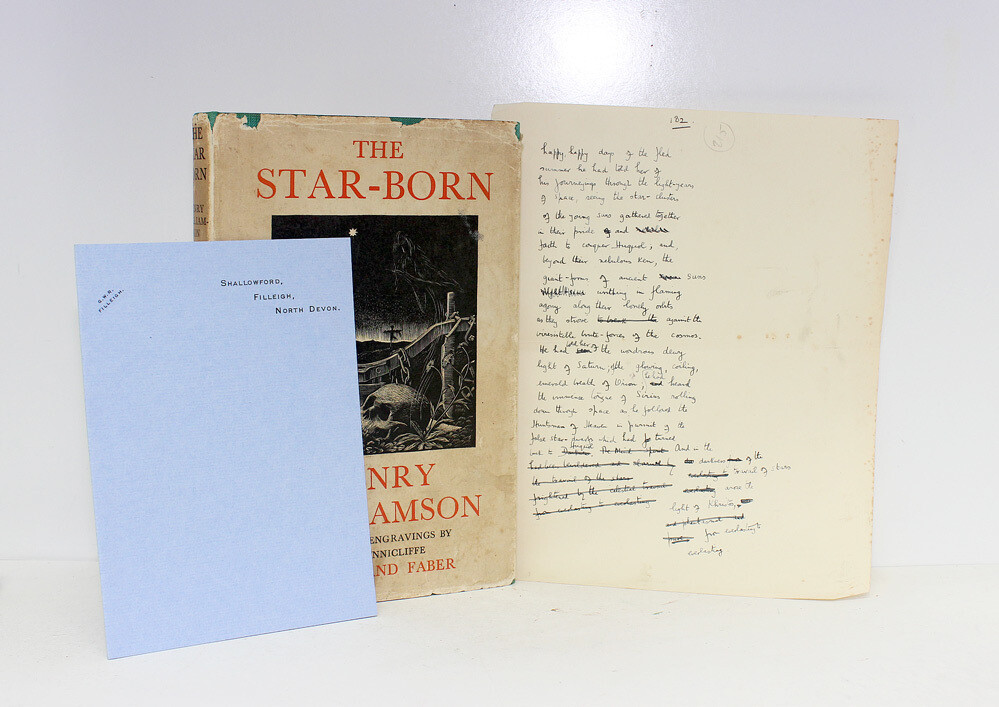 THE
STAR-BORN
NRY
AMSON
ENGRAVINGS BY
NNICLIFFE
ND FABER
HE
AR
RN
NRY
G.W.R.
FILLEIGH.
SHALLOWFORD,
FILLEIGH,
NORTH DEVON.
182.
happy, happy days of the
summer he had told her of
his journeyings through the light-years
of space, seeing the star-clusters
of the young suns gathered together
in their pride and
faith to conquer, and,
beyond their nebulous ken, the
giant-forms of ancient suns
writhing in flaming
agony along their lonely orbits
as they strove against the
irresistible brute-forces of the cosmos.
He had told her of the wondrous dewy
light of Saturn, of the glowing, coiling,
emerald breath of, heard
the immense tongue of Sirius rolling
down through space as he followed the
Huntsman of Heaven in pursuit of the
false star-dwarfs which had turned
And in the
darkness of the
had been bewildered and
travail of stars
the travail of the stars
everlasting arose the
frightened by the celestial travail
light of
from everlasting to everlasting
and
from everlasting to
everlasting.